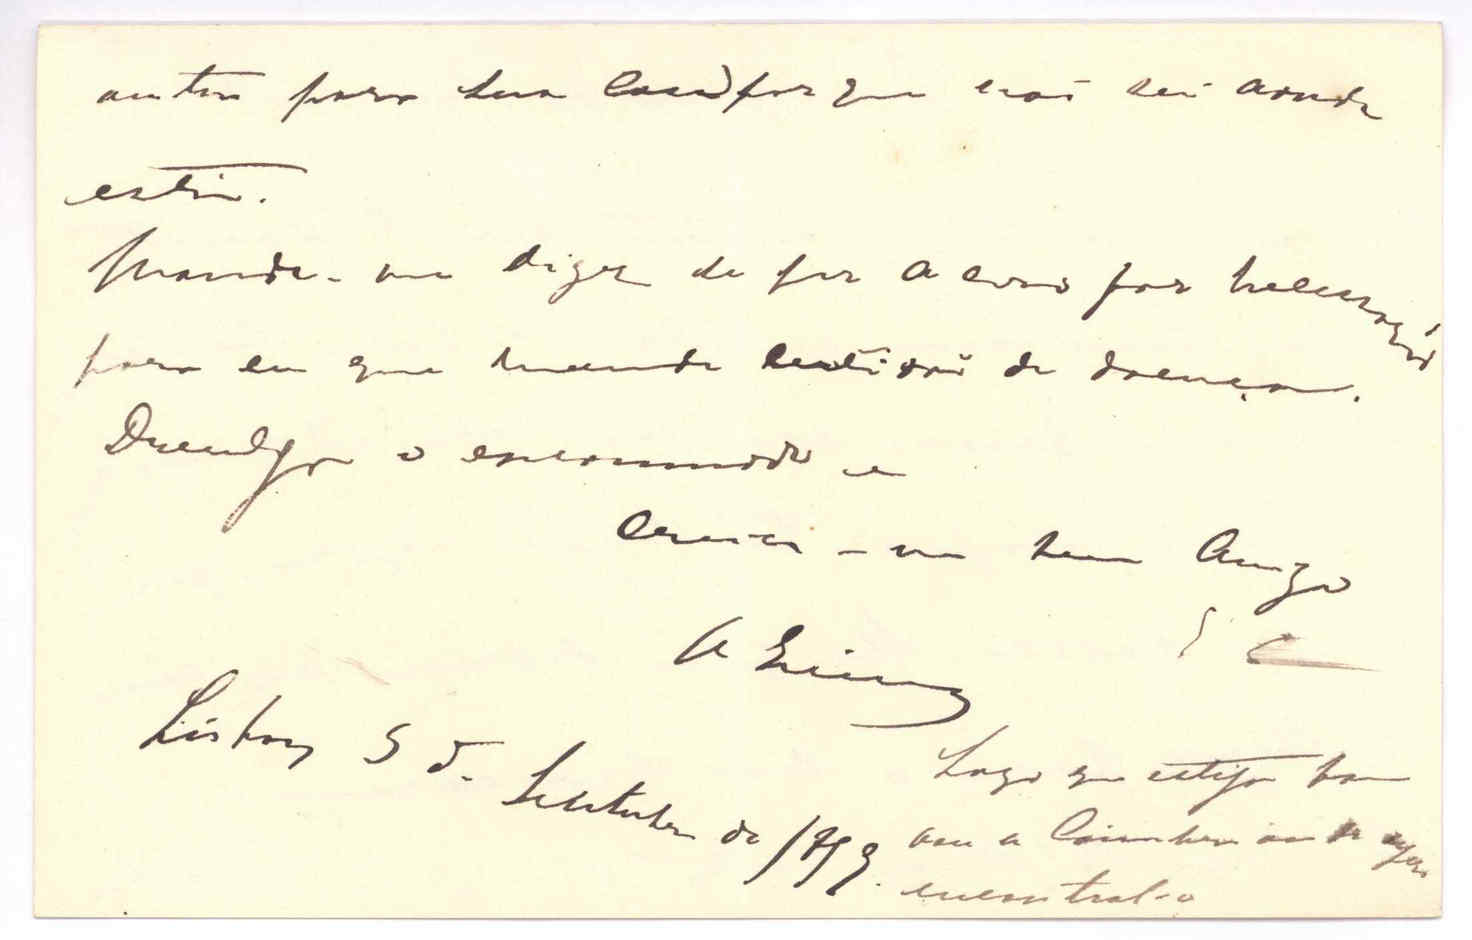 para sua casa porque não sei aonde
está.
Mande-me dizer se for a cousa por
para eu que mande certidão de doença.
Desculpe o encommodo e
creia-me seu Amigo
A
Lisboa 5 de Setembro de 1899.
Logo que esteja bom
vou a Coimbra onde espero
encontral-o